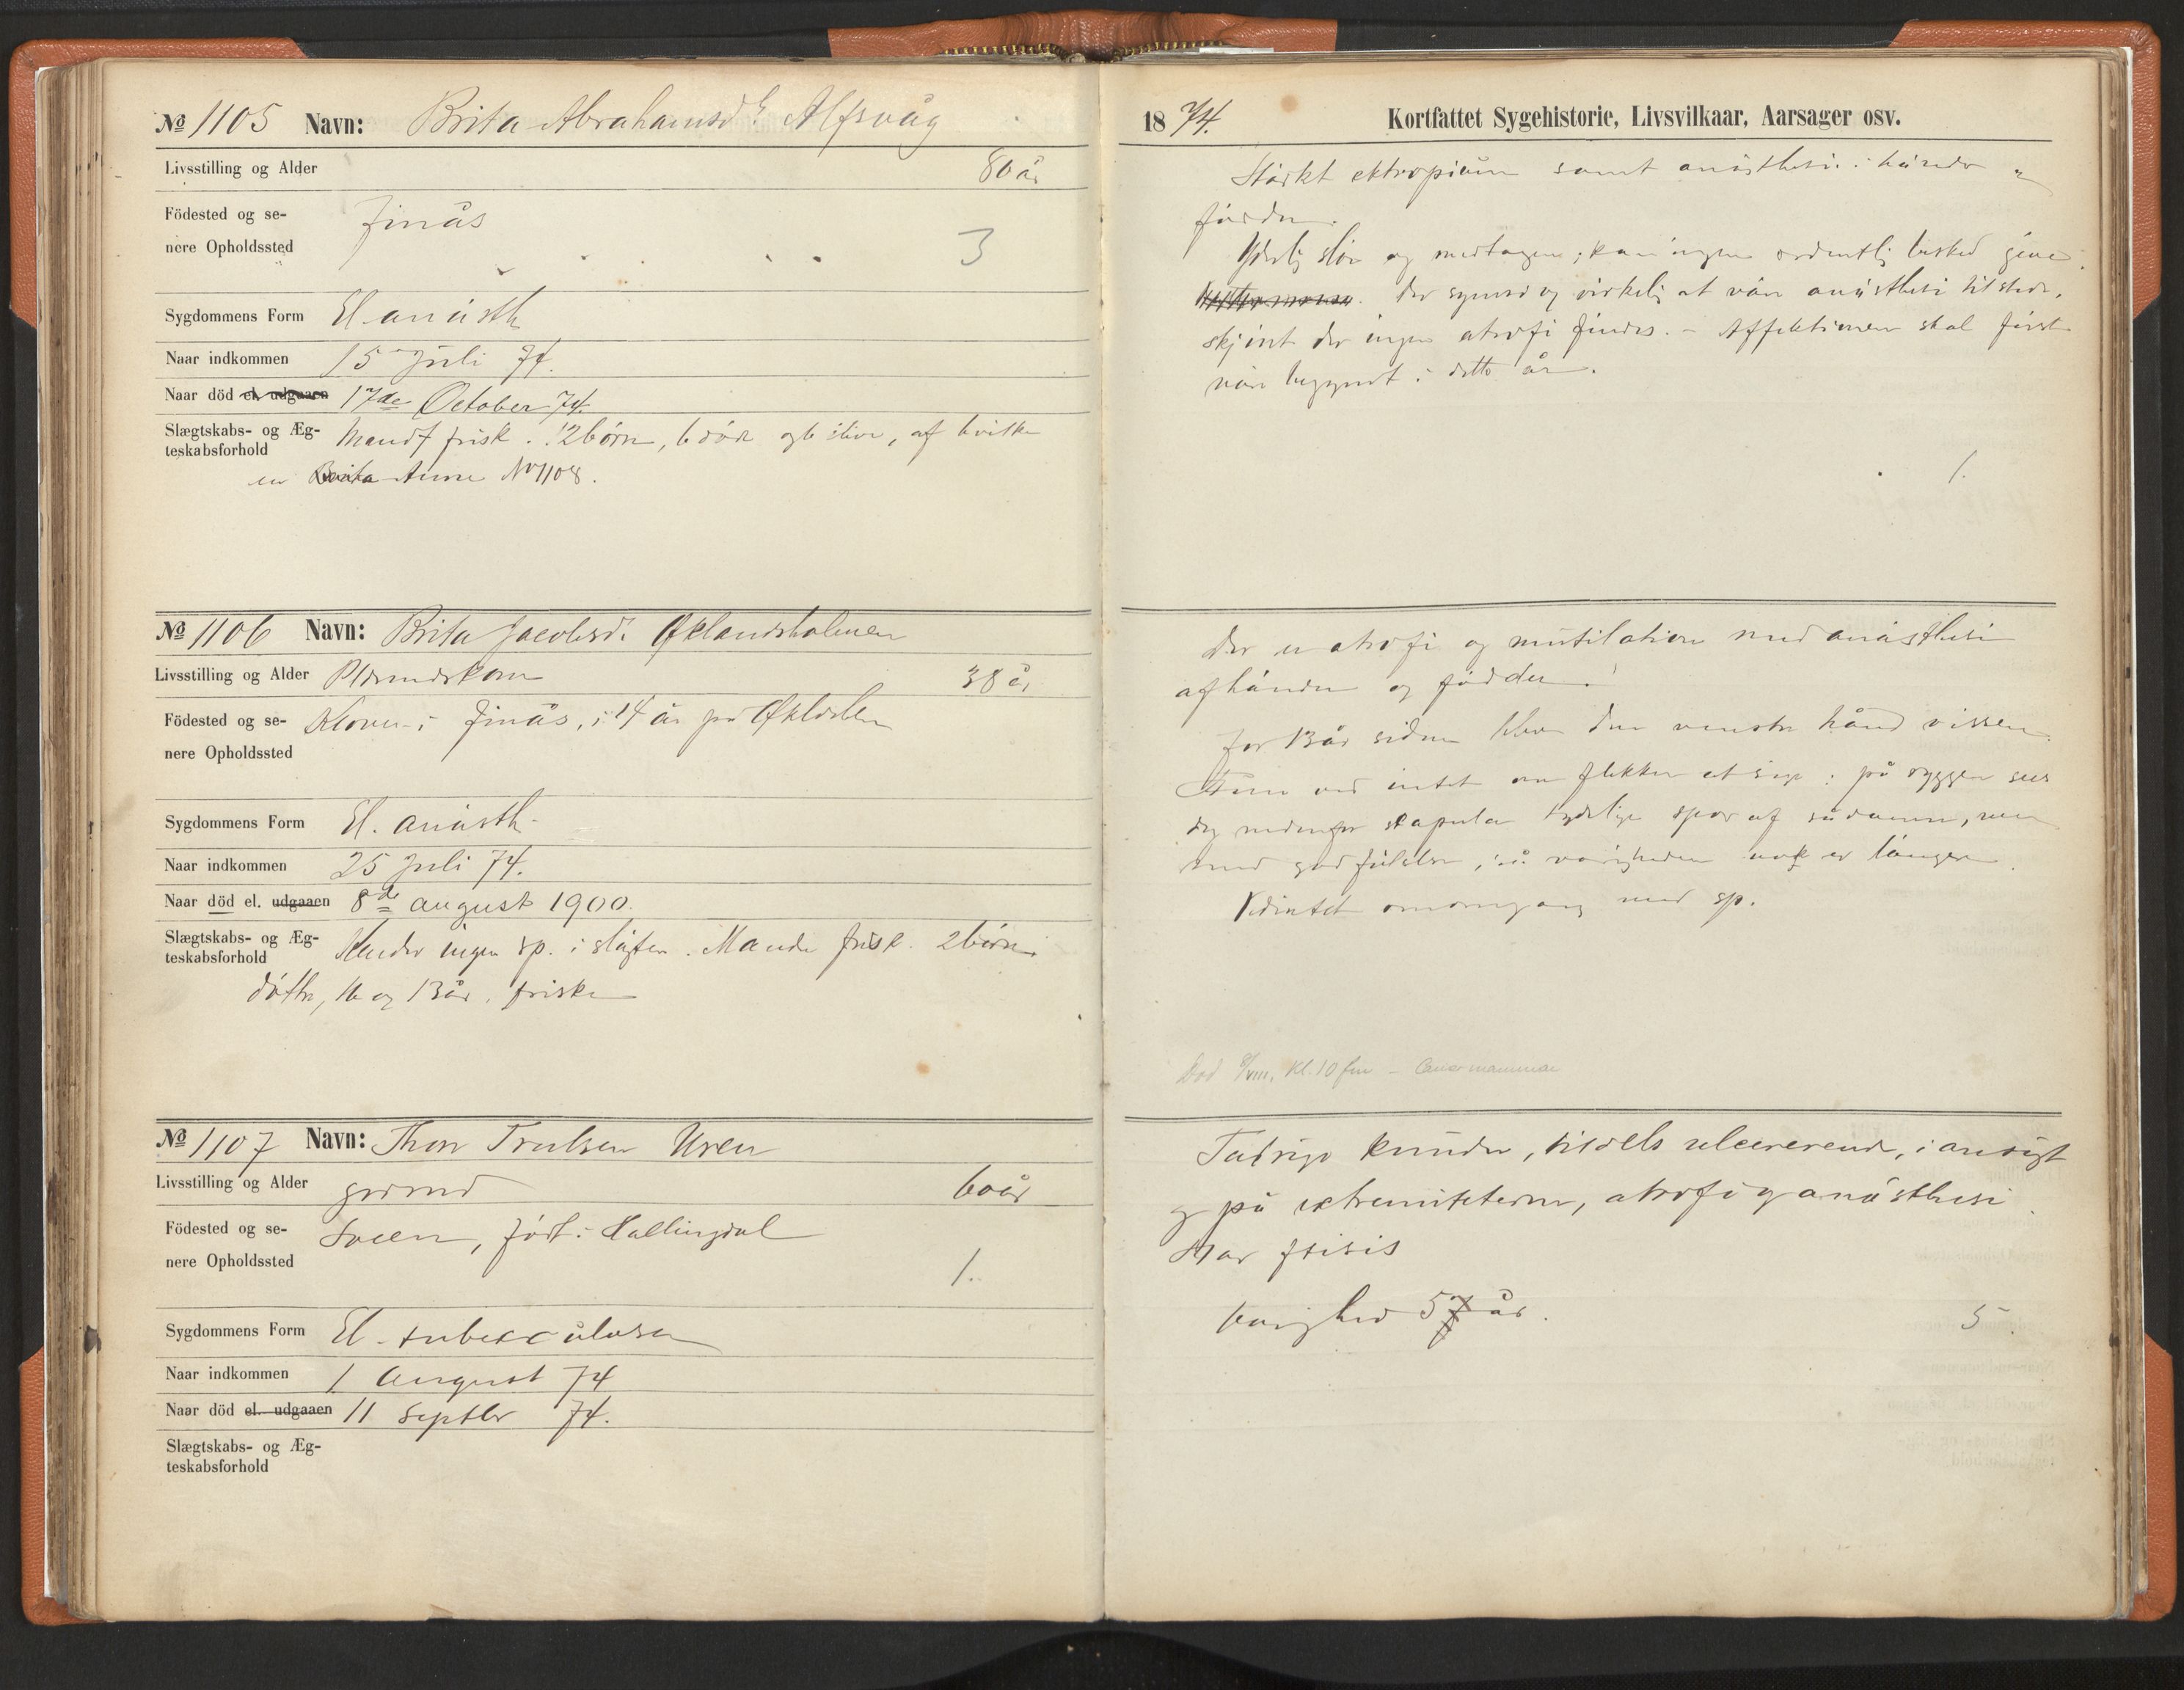 № 1105 Navn: Brita Abrahamsd. Alfsvåg
Livsstilling og Alder 80 år
Födested og se-
nere Opholdssted
Finås
3
Sygdommens Form El. anästh
Naar indkommen 15 Juli 74.
Naar död el. udgaaen 17de October 74.
Slægtskabs- og Æg-
teskabsforhold
Mand f frisk. 12 börn, 6 döde og 6 i live, af hvilke
en Brita Anne No 1108.
№ 1106 Navn: Brita Jacobsd. Öklandsholmen
Livsstilling og Alder Pldsmdskone 38 år
Födested og se-
nere Opholdssted
i Finås, i 14 år på
Sygdommens Form El. anästh.
Naar indkommen 25 Juli 74.
Naar död el. udgaaen 8de august 1900.
Slægtskabs- og Æg-
teskabsforhold
Kender ingen sp. i slägten. Manden frisk. 2 börn
döttre, 16 og 13 år, friske
№ 1107 Navn: Thor Trulsen Uren
Livsstilling og Alder grdmd 60 år
Födested og se-
nere Opholdssted
Sveen, födt i Hallingdal
1.
Sygdommens Form El. tuberculosa
Naar indkommen 1 August 74
Naar död el. udgaaen 11 Septbr 74.
Slægtskabs- og Æg-
teskabsforhold
1874. Kortfattet Sygehistorie, Livsvilkaar, Aarsager osv.
Stärkt ektropium samt anästhesi i händer og
födder.
Yderlig slöv og medtagen; kan ingen ordentlig besked give.
Der synes dog virkelig at väre anästhesi tilstede,
skjönt der ingen atrofi findes. – Affektionen skal först
väre begyndt i dette år.
1.
Der er atrofi og mutilation med anästhesi
af händer og födder.
For 13 år siden blev den venstre hånd vissen.
Hun ved intet om flekker at sige; på ryggen sees
dog nedenfor skapula tydelige spor af sådanne, men
med god fölelse, så varigheden nok er längere.
Ved intet om omgang med sp.
Död 8/VIII, Kl. 10 fm – Cancer mammae
Talrige knuder, tildels ulcererende, i ansigt
og på extremiteterne, atrofi og anästhesi.
Har ftisis
Varighed 5 7 år.
5.